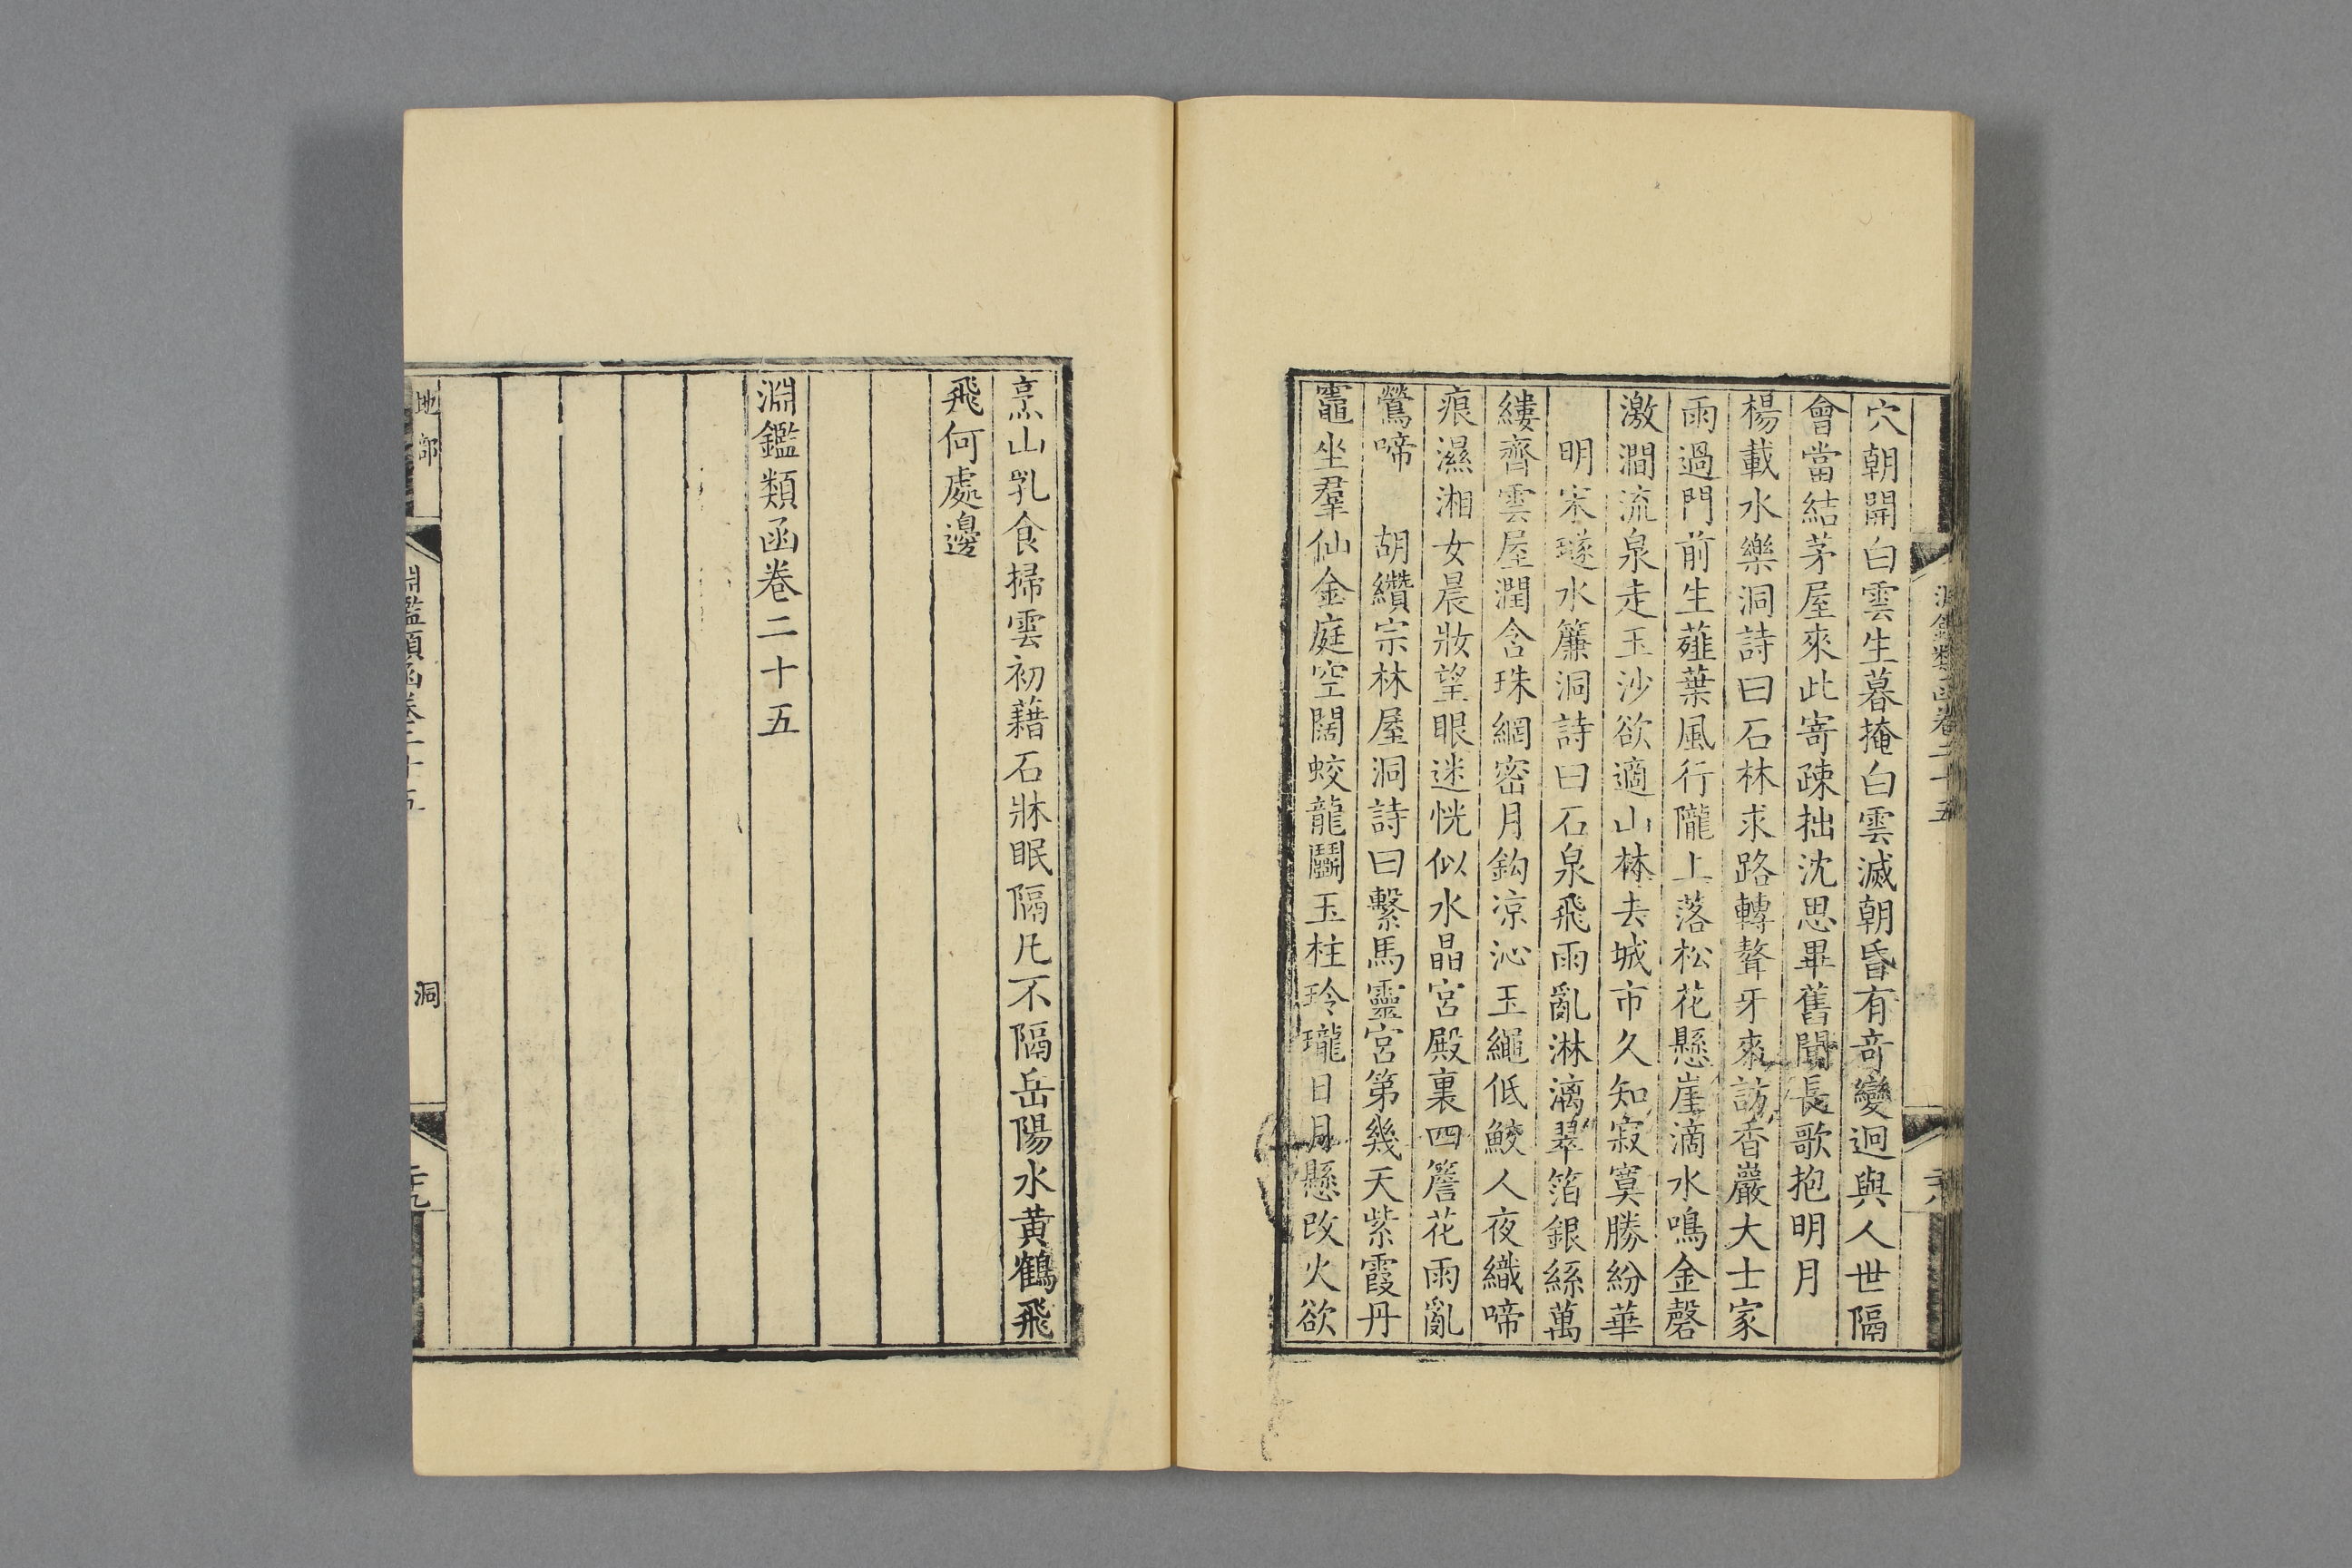 淵鑑類函卷二十五
穴朝開白雲生暮掩白雲滅朝昏有竒變迥與人世隔
會當結茅屋來此寄疎拙沈思畢舊聞長歌抱明月
楊載水樂洞詩曰石林求路轉聱牙來訪香巖大士家
雨過門前生薤葉風行隴上落松花懸崖滴水鳴金磬
激澗流泉走玉沙欲適山林去城市久知寂寞勝紛華
明宋璲水簾洞詩曰石泉飛雨亂淋漓翠箔銀絲萬
縷齊雲屋潤含珠網密月鈎凉沁玉繩低鮫人夜織啼
痕濕湘女晨妝望眼迷恍似水晶宮殿裏四簷花雨亂
鶯啼　胡纘宗林屋洞詩曰繫馬靈宮第幾天紫霞丹
竈坐羣仙金庭空闊蛟龍鬭玉柱玲瓏日月懸改火欲
烹山乳食掃雲初藉石牀眠隔凡不隔岳陽水黄鶴飛
飛何處邊
淵鑑類函卷二十五
地部
淵鑑類函卷二十五
洞